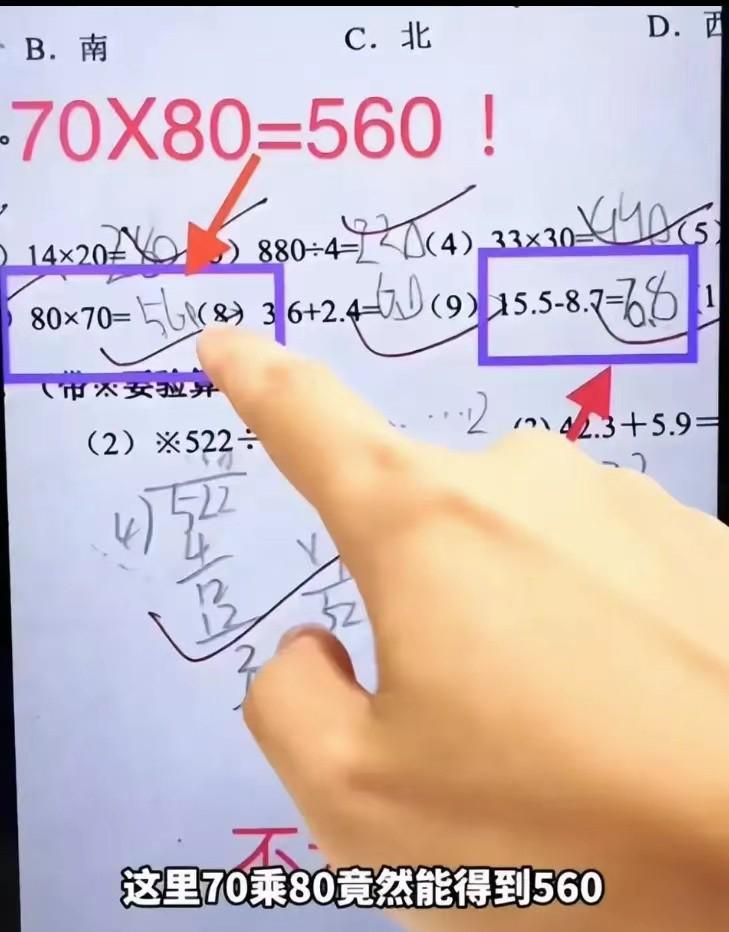 B. 南 C. 北 D. 西
70X80=560！
14×20=280 880÷4=220 (4) 33×30= (5)
80×70=560 (8) 3.6+2.4=6.0 (9) 15.5-8.7=6.8
(带※要验算
(2) ※522÷ ……2 42.3+5.9=
4 522
4
12
12
52
2
不
这里70乘80竟然能得到560